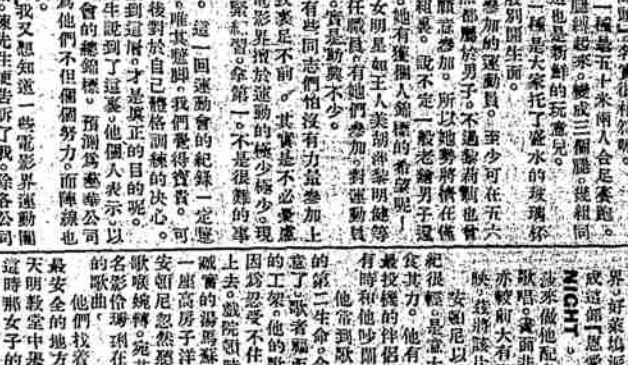 一種是五十米兩人合足賽跑。
腿縛起來。變成三個腿。幾組同
這也是新鮮的玩意兒。
一種是大家托了盛水的玻璃杯
般別開生面。
參加的運動員。至少可在五六
然都屬於男子。不過黎莉莉也曾
願意參加。所以她勢將擠在僅
組裏。說不定一般老槍男子還
她有獲個人錦標的希望呢！
女明星如王人美胡萍黎明健等
任職員。有她們參加。對運動員
實是動興不少。
有些同志們怕沒有力量參加上
致裹足不前。其實是不必憂慮
電影界擅於運動的極少極少。現
緊練習。拿第一。不是很難的事
。這一回運動會的紀錄一定是
。唯其蹩脚。我們覺得寶貴。可
後對於自己體格訓練的决心。
到這層。才是眞正的目的呢。
生說到了這裏。他個人表示以
會的總錦標。預測爲藝華公司
爲他們不但個個努力。而陣線也
我又想知道一些電影界運動關
陳先生便告訴了我。除各公司
界。好萊塢派
成這部「恩愛
NIGHT」。
莎來做他配
歌唱。畫面非
亦較前大有
映。茲將該片
安頓尼以
紀很輕。是意大
食其力。他有
最投機的伴侶
有時和他吵鬧
他常到歌
的第二生命。今
意了。歌者
的工架。他的歌
因爲忍受不住
上去。戲院頓時
誠實的湯馬蘇
一座高房子洋
安頓尼忽然聽
歌喉婉轉。宛若
名影伶瑪琍在
的歌曲。
他們找着
最安全的地方
天明教堂中舉
這時那女子的